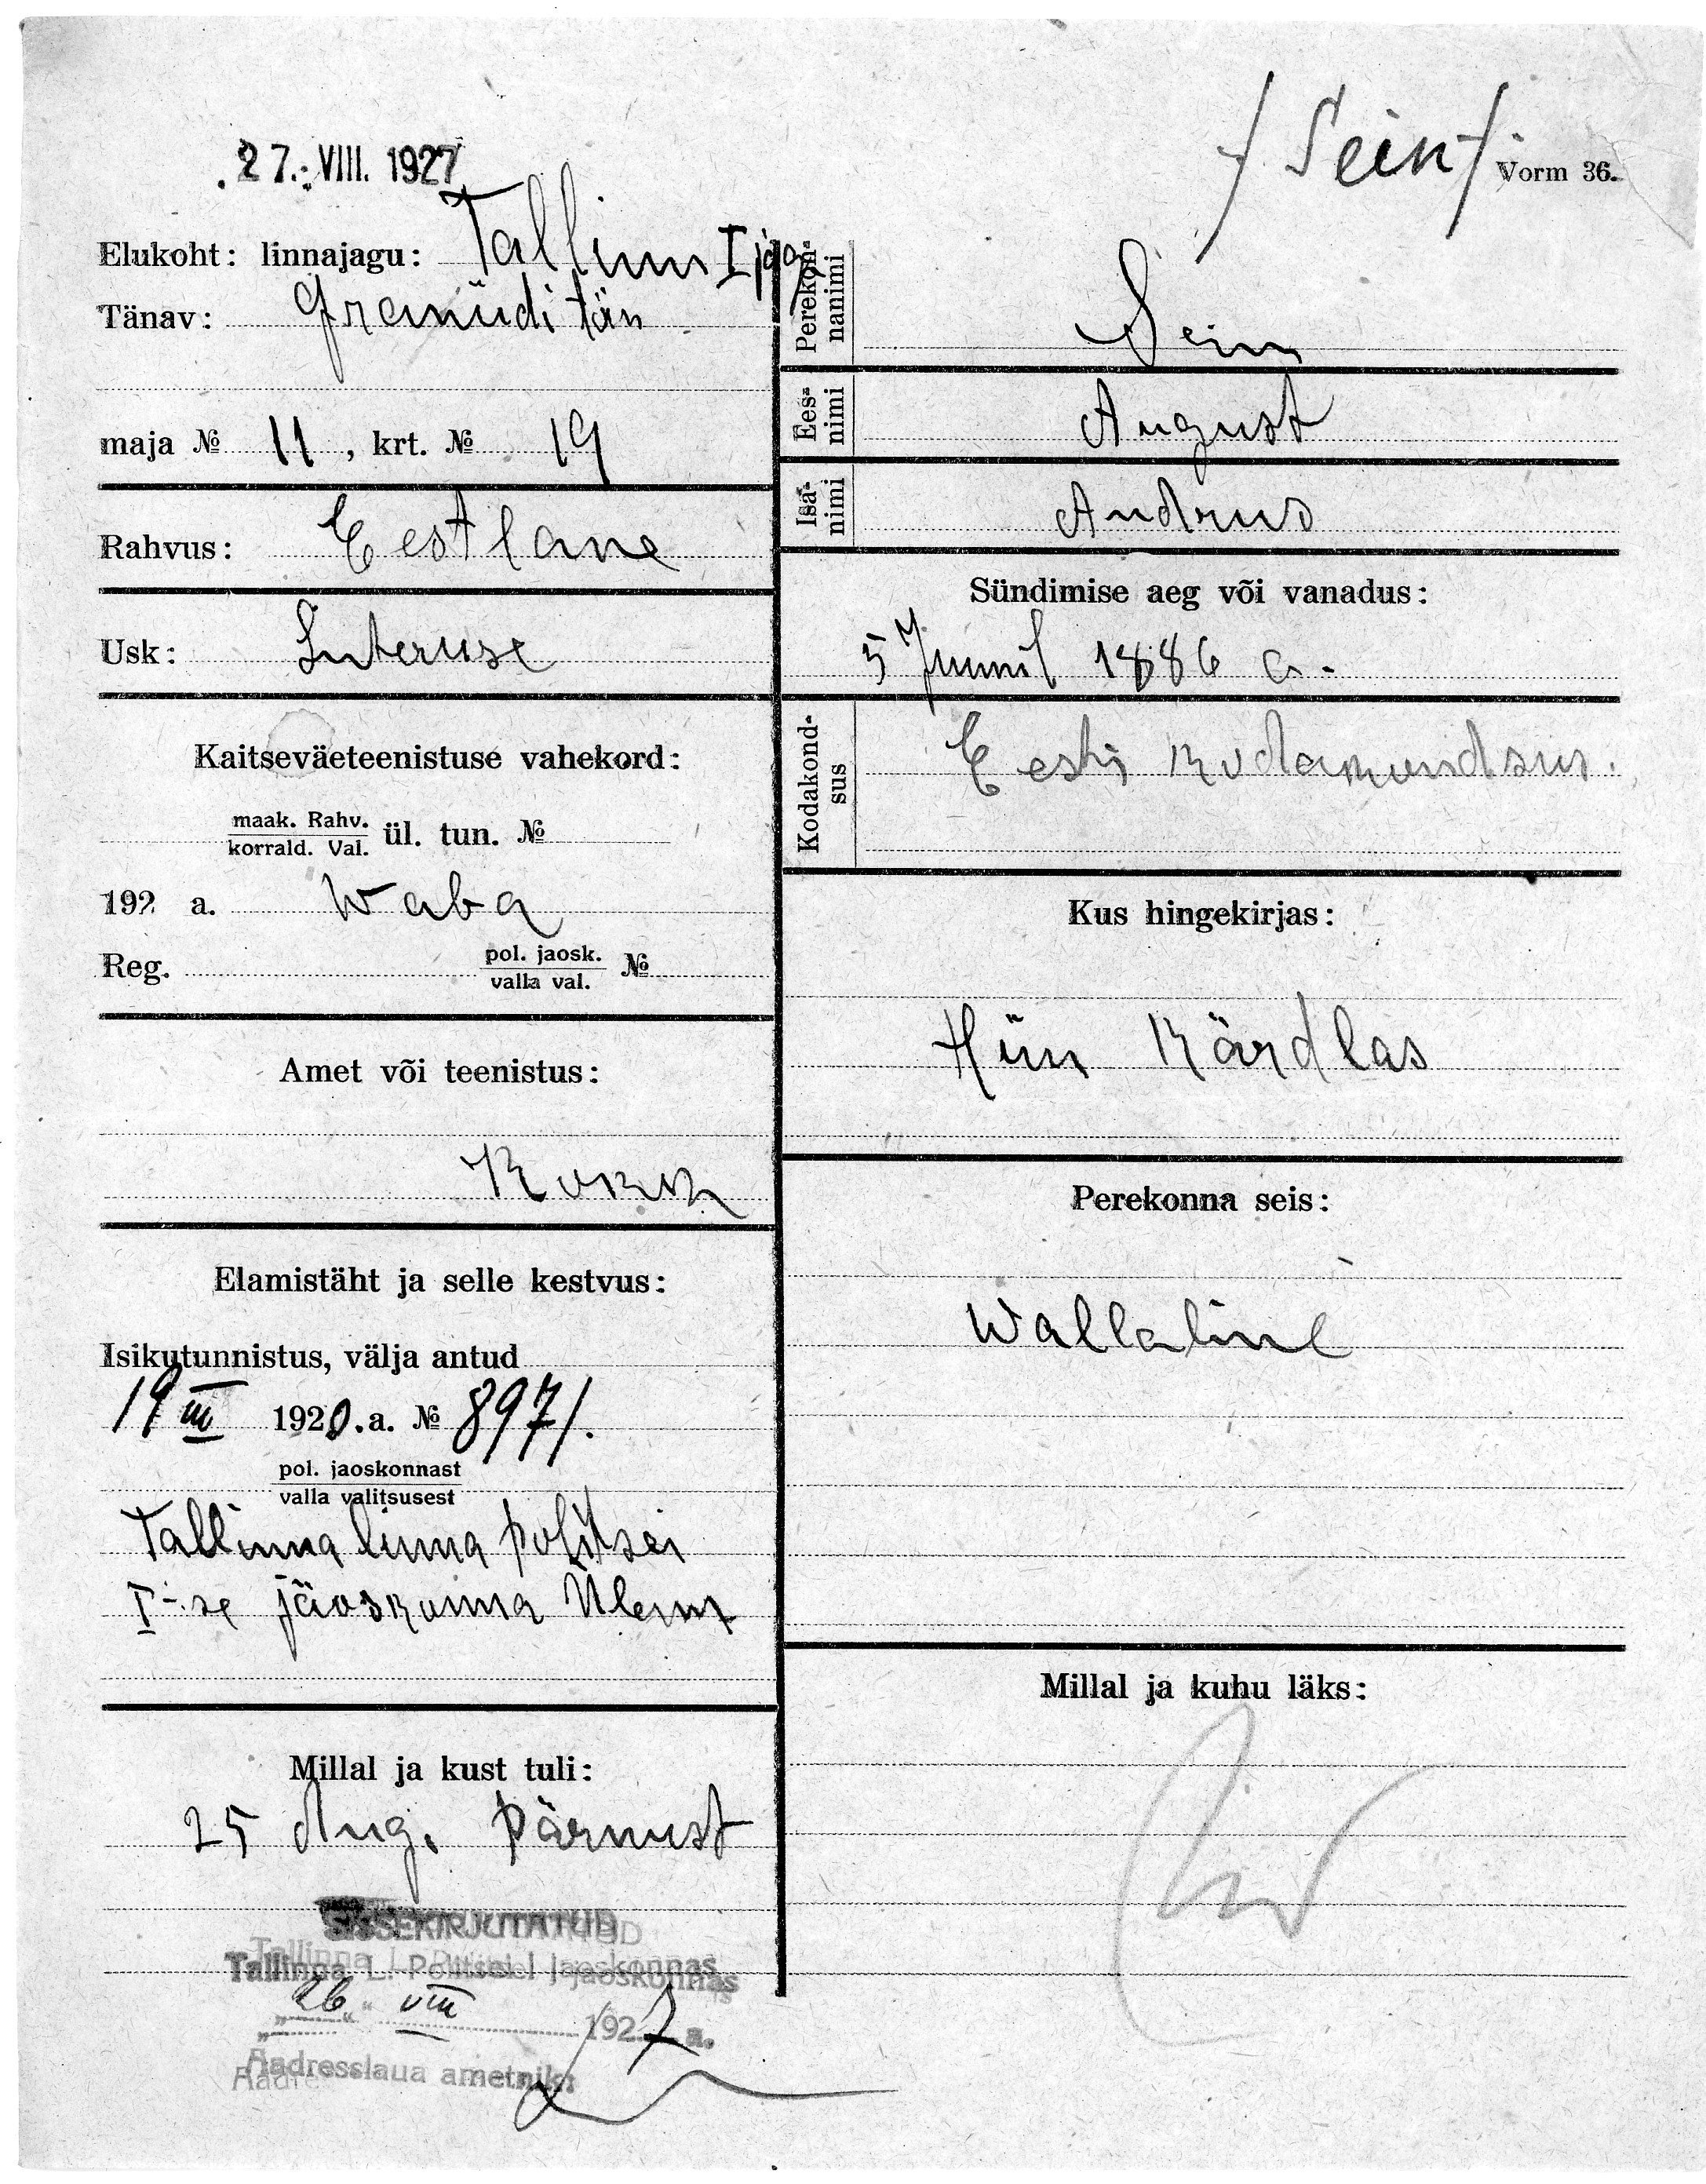 27. VIII. 1927
/Sein/
Vorm 36.
Elukoht: linnajagu: Tallinn I jag
Tänav: Granüüdi tän
maja № 11, krt. № 19
Rahvus: Eestlane
Usk: Luteruse
Kaitseväeteenistuse vahekord:
maak. Rahv.
korrald. Val. ül. tun. №
192 a. Waba
Reg. pol. jaosk.
valla val. №
Amet või teenistus:
Kokk
Elamistäht ja selle kestvus:
Isikutunnistus, välja antud
19 III 1920.a. № 8971.
pol. jaoskonnast
valla valitsusest
Tallinna linna politsei
I-se jäoskonna Ülem
Millal ja kust tuli:
25 Aug. Pärnust
SISSEKIRJUTATUD
Tallinna L. Politsei I jaoskonnas
"26" VIII 1927 a.
Aadresslaua ametnik:
Perekon-
nanimi
Sein
Ees-
nimi
August
Isa-
nimi
Andrus
Sündimise aeg või vanadus:
5 Juunil 1886 a.
Kodakond-
sus
Eesti kodakondsus.
Kus hingekirjas:
Hiin Kärdlas
Perekonna seis:
Wallaline
Millal ja kuhu läks: